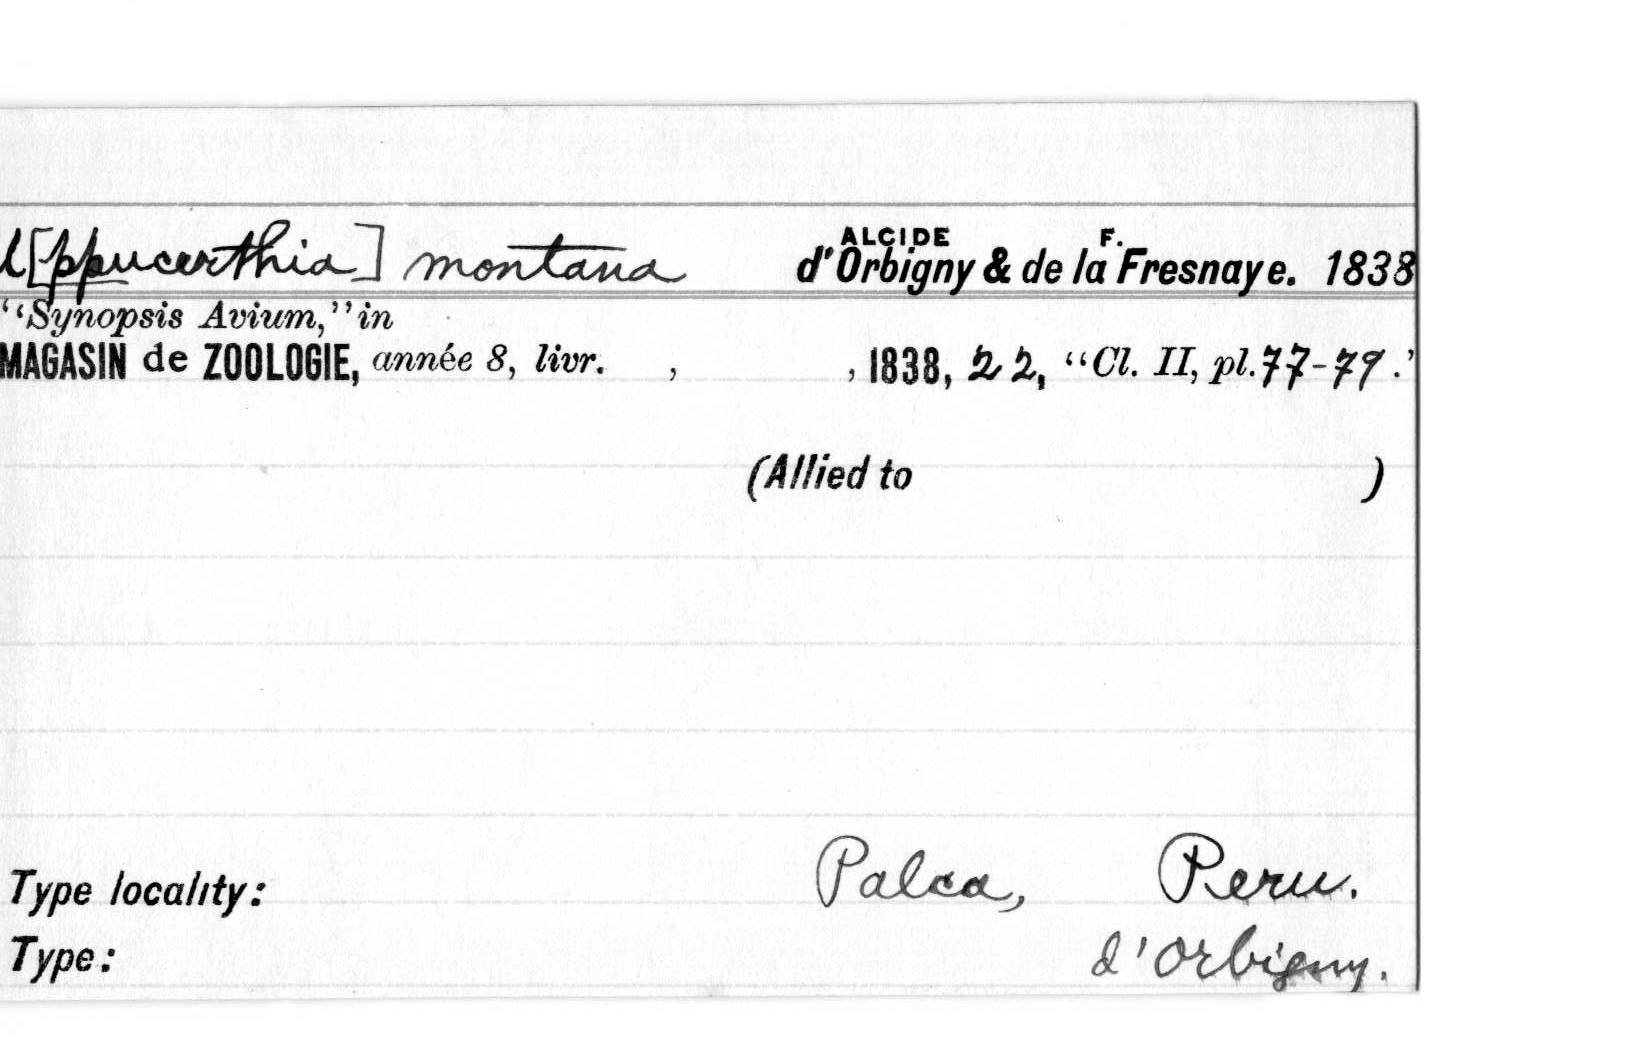 l[ppucerthia] montana ALCIDE d'Orbigny & de la F. Fresnaye. 1838
"Synopsis Avium," in
MAGASIN de ZOOLOGIE, année 8, livr. , , 1838, 22, "Cl. II, pl. 77-79."
(Allied to )
Type locality: Palca, Peru.
Type: d'Orbigny.